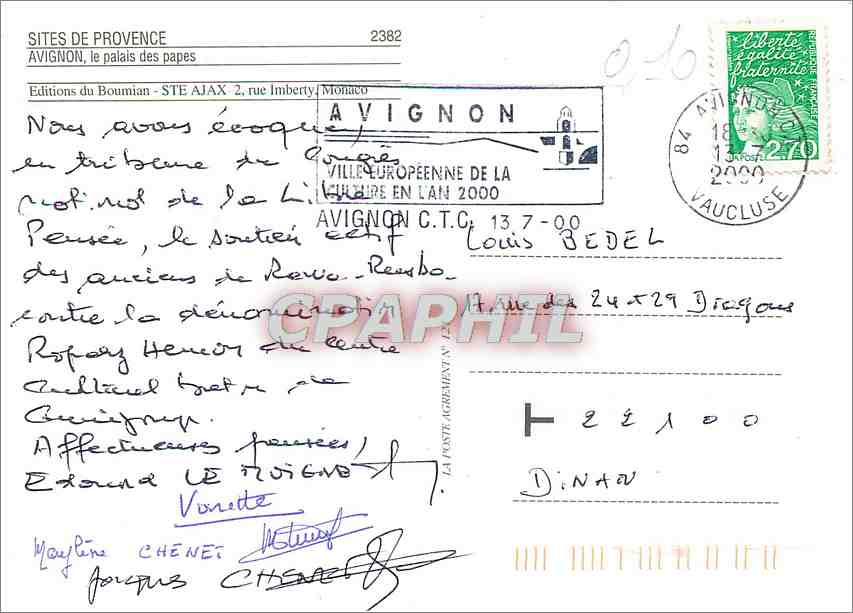 SITES DE PROVENCE 2382
AVIGNON, le palais des papes
Editions du Boumian - STE AJAX 2, rue Imberty, Monaco
0,10
liberté
égalité
fraternité
REPUBLIQUE FRANÇAISE
LA POSTE
2,70
84 AVIGNON C.T.C.
18
13-7
2000
VAUCLUSE
AVIGNON
VILLE EUROPÉENNE DE LA
CULTURE EN L'AN 2000
AVIGNON C.T.C. 13.7-00
Nous avons évoqué,
en tribune du Congrès
national de la Libre
Pensée, le soutien actif
des anciens de
contre la dénomination
Roparz Hemon du centre
culturel breton de
Guingamp.
Affectueuses pensées,
Edouard LE MOIGNE
Vonette
Maylène CHENET
Jacques CHENET
Louis BEDEL
17, rue des 24 et 29 Dragons
T 22100
DINAN
LA POSTE AGREMENT N°
CPAPHIL